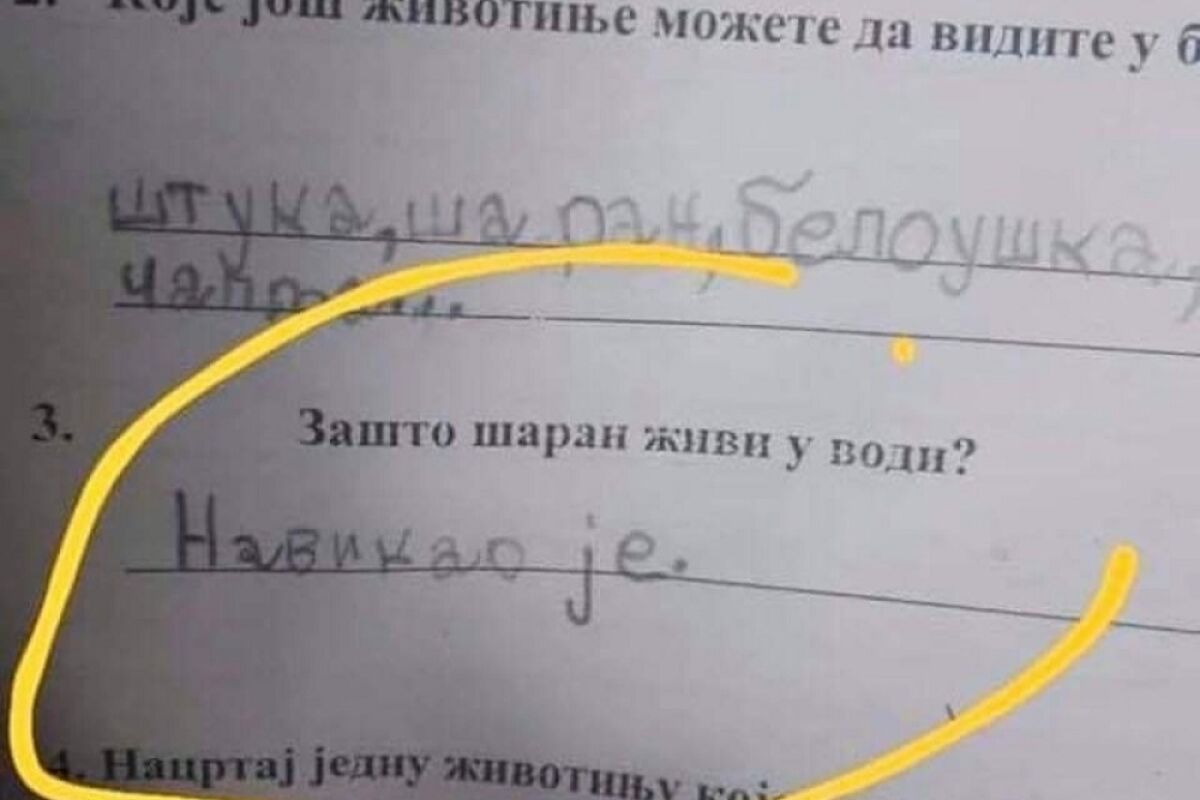 2. Које још животиње можете да видите у
штука, шаран, белоушка,
3. Зашто шаран живи у води?
Навикао је.
4. Нацртај једну животињу